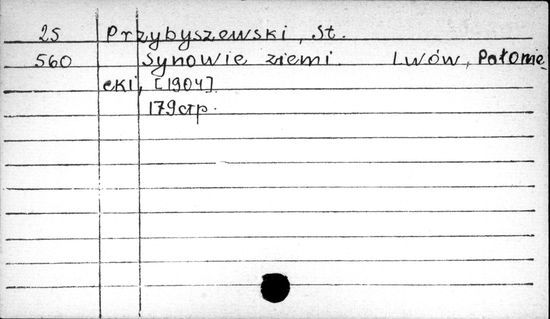 25 Przybyszewski, St.
560 Synowie ziemi. Lwów, Połonie
cki, [1904].
179 стр.